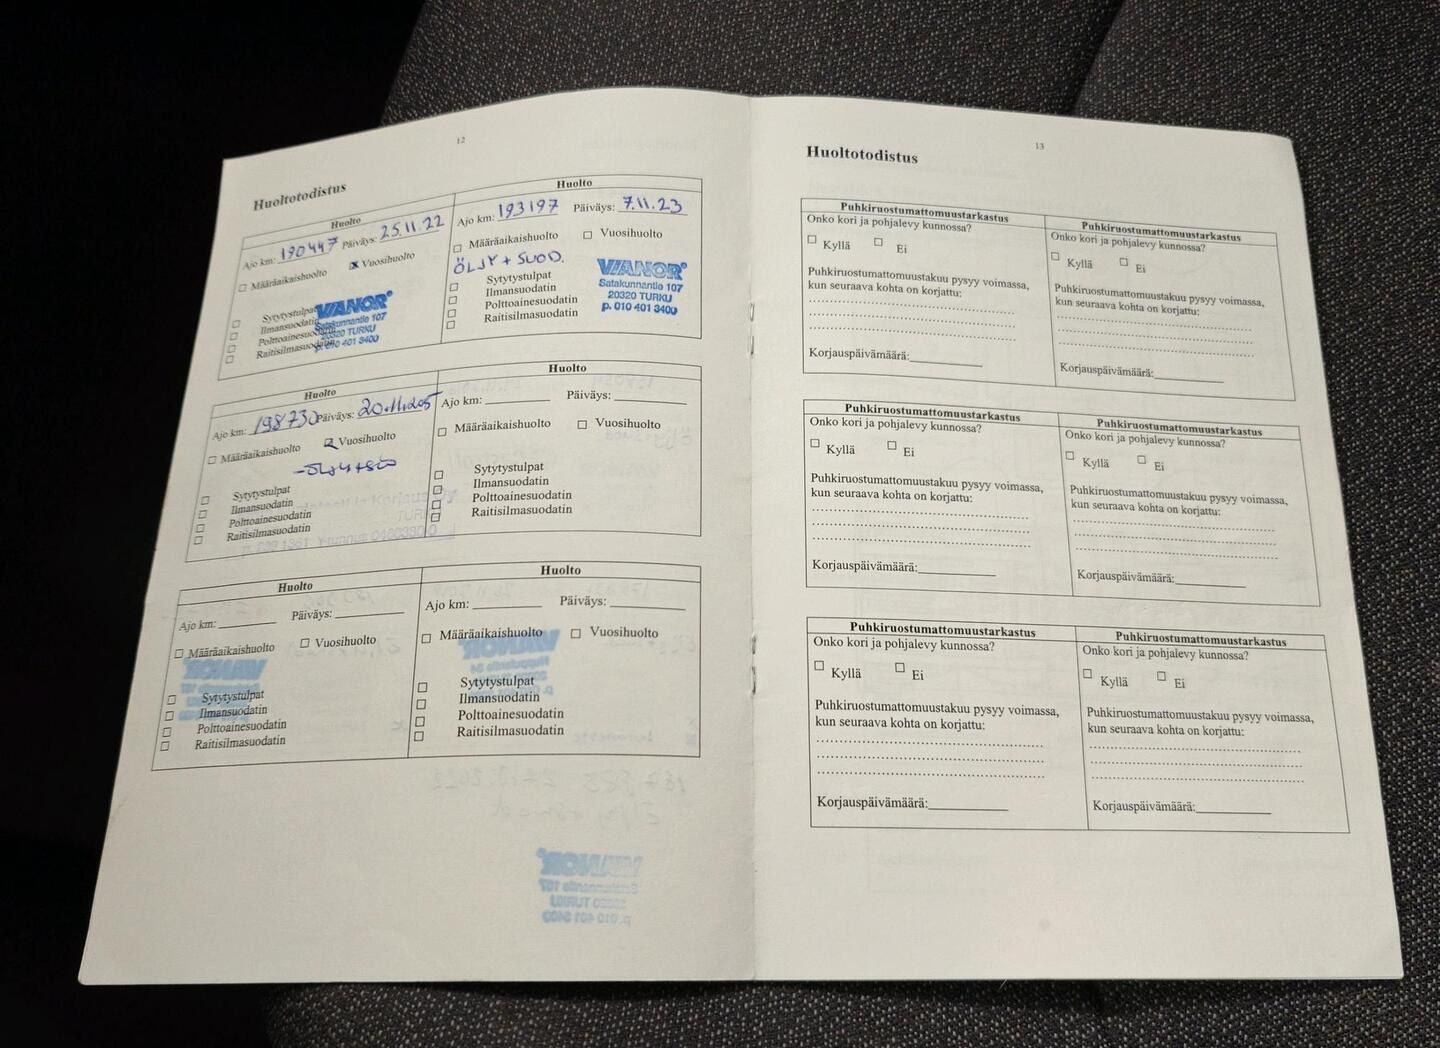 12
Huoltotodistus
Huolto
Ajo km: 190447 Päiväys: 25.11.22
Määräaikaishuolto Vuosihuolto
Sytytystulpat
Ilmansuodatin
Polttoainesuodatin
Raitisilmasuodatin
VIANOR
Satakunnantie 107
20320 TURKU
p. 010 401 3400
Huolto
Ajo km: 193197 Päiväys: 7.11.23
Määräaikaishuolto Vuosihuolto
ÖLJY + SUOD.
Sytytystulpat
Ilmansuodatin
Polttoainesuodatin
Raitisilmasuodatin
VIANOR
Satakunnantie 107
20320 TURKU
p. 010 401 3400
Huolto
Ajo km: 198730 Päiväys:
Määräaikaishuolto Vuosihuolto
Sytytystulpat
Ilmansuodatin
Polttoainesuodatin
Raitisilmasuodatin
Huolto
Ajo km: Päiväys:
Määräaikaishuolto Vuosihuolto
Sytytystulpat
Ilmansuodatin
Polttoainesuodatin
Raitisilmasuodatin
Huolto
Ajo km: Päiväys:
Määräaikaishuolto Vuosihuolto
Sytytystulpat
Ilmansuodatin
Polttoainesuodatin
Raitisilmasuodatin
Huolto
Ajo km: Päiväys:
Määräaikaishuolto Vuosihuolto
Sytytystulpat
Ilmansuodatin
Polttoainesuodatin
Raitisilmasuodatin
13
Huoltotodistus
Puhkiruostumattomuustarkastus
Onko kori ja pohjalevy kunnossa?
Kyllä Ei
Puhkiruostumattomuustakuu pysyy voimassa,
kun seuraava kohta on korjattu:
Korjauspäivämäärä:
Puhkiruostumattomuustarkastus
Onko kori ja pohjalevy kunnossa?
Kyllä Ei
Puhkiruostumattomuustakuu pysyy voimassa,
kun seuraava kohta on korjattu:
Korjauspäivämäärä:
Puhkiruostumattomuustarkastus
Onko kori ja pohjalevy kunnossa?
Kyllä Ei
Puhkiruostumattomuustakuu pysyy voimassa,
kun seuraava kohta on korjattu:
Korjauspäivämäärä:
Puhkiruostumattomuustarkastus
Onko kori ja pohjalevy kunnossa?
Kyllä Ei
Puhkiruostumattomuustakuu pysyy voimassa,
kun seuraava kohta on korjattu:
Korjauspäivämäärä:
Puhkiruostumattomuustarkastus
Onko kori ja pohjalevy kunnossa?
Kyllä Ei
Puhkiruostumattomuustakuu pysyy voimassa,
kun seuraava kohta on korjattu:
Korjauspäivämäärä:
Puhkiruostumattomuustarkastus
Onko kori ja pohjalevy kunnossa?
Kyllä Ei
Puhkiruostumattomuustakuu pysyy voimassa,
kun seuraava kohta on korjattu:
Korjauspäivämäärä: